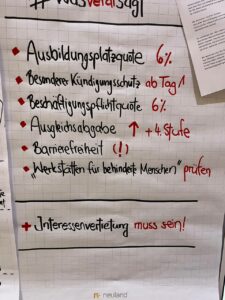 #wasverdisagt
Ausbildungsplatzquote 6%
Besonderer Kündigungsschutz ab Tag 1
Beschäftigungspflichtquote 6%
Ausgleichsabgabe ↑ + 4. Stufe
Barrierefreiheit (!)
„Werkstätten für behinderte Menschen" prüfen
+ Interessenvertretung muss sein!
neuland